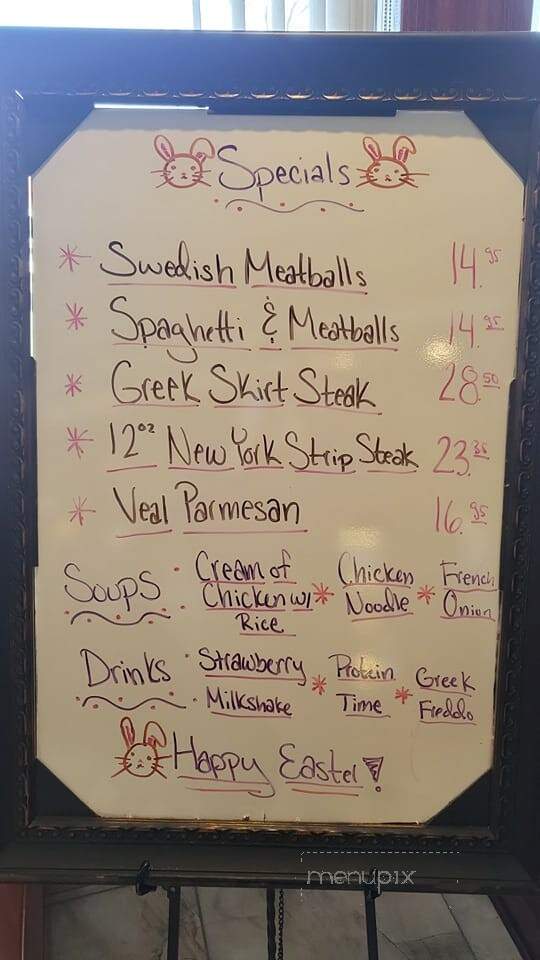 Specials
* Swedish Meatballs 14.95
* Spaghetti & Meatballs 14.95
* Greek Skirt Steak 28.50
* 12oz New York Strip Steak 23.35
* Veal Parmesan 16.95
Soups • Cream of Chicken w/ Rice * Chicken Noodle * French Onion
Drinks • Strawberry Milkshake * Protein Time * Greek Freddo
Happy Easter!
menupix